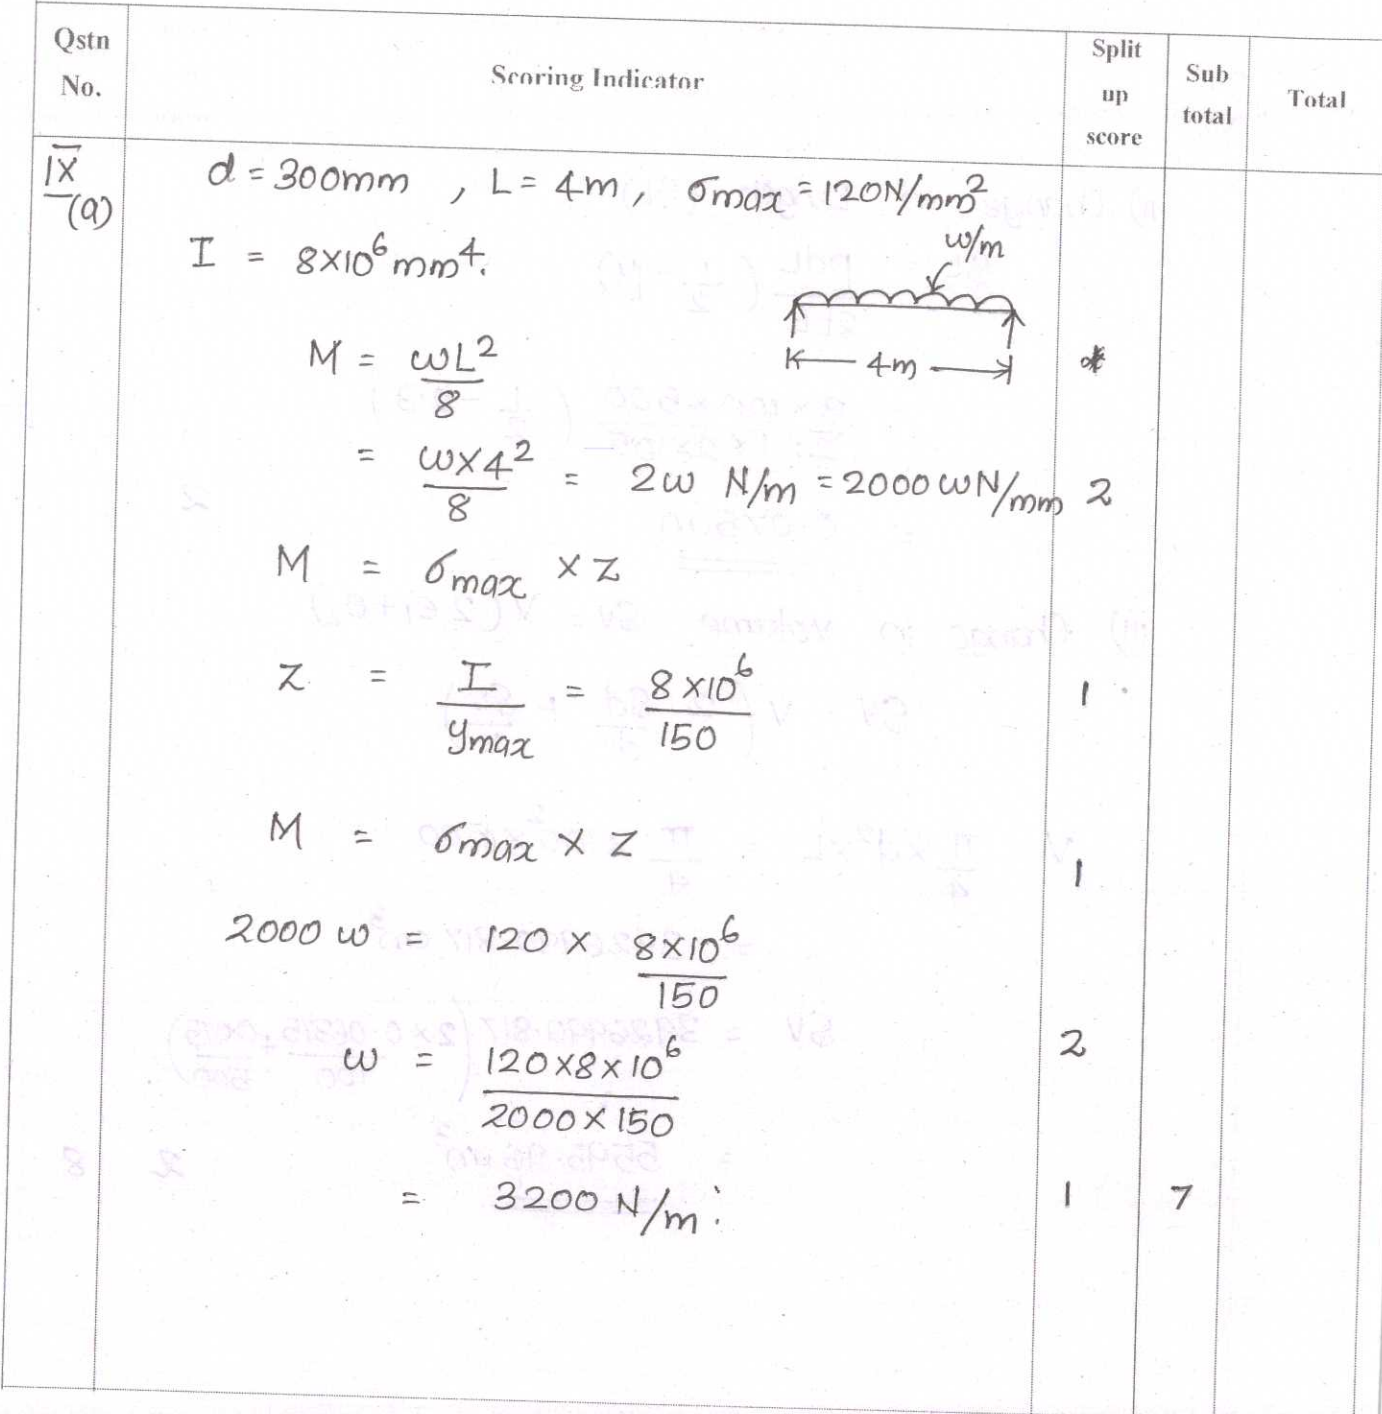 Qstn No.
Scoring Indicator
Split up score
Sub total
Total
IX (a)
d = 300mm , L = 4m, σmax = 120N/mm²
I = 8×10⁶ mm⁴.
w/m
4m
M = ωL²/8
= ω×4²/8 = 2ω N/m = 2000 ωN/mm 2
M = σmax × Z
Z = I/ymax = 8×10⁶/150 1
M = σmax × Z 1
2000 ω = 120 × 8×10⁶/150
ω = 120×8×10⁶/2000×150 2
= 3200 N/m. 1 7